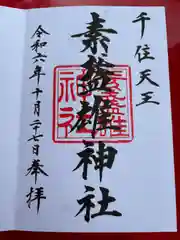 千住天王
素盞雄神社
令和六年十月二十七日奉拝